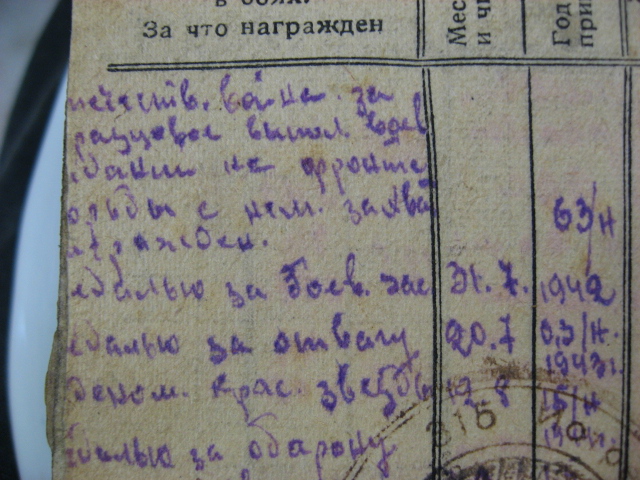 в боях.
За что награжден
Мес
и чи
Год
при
ечеств. война. за
разцовое выпол. воев
дании на фронте
орьбы с нем. захва
63/н
агражден.
едалью за боев. зас 31.7. 1942
едалью за отвагу 20.7 03/н.
1943г.
деном. крас. звезды 12.8 15/н
едалью за оборону
316